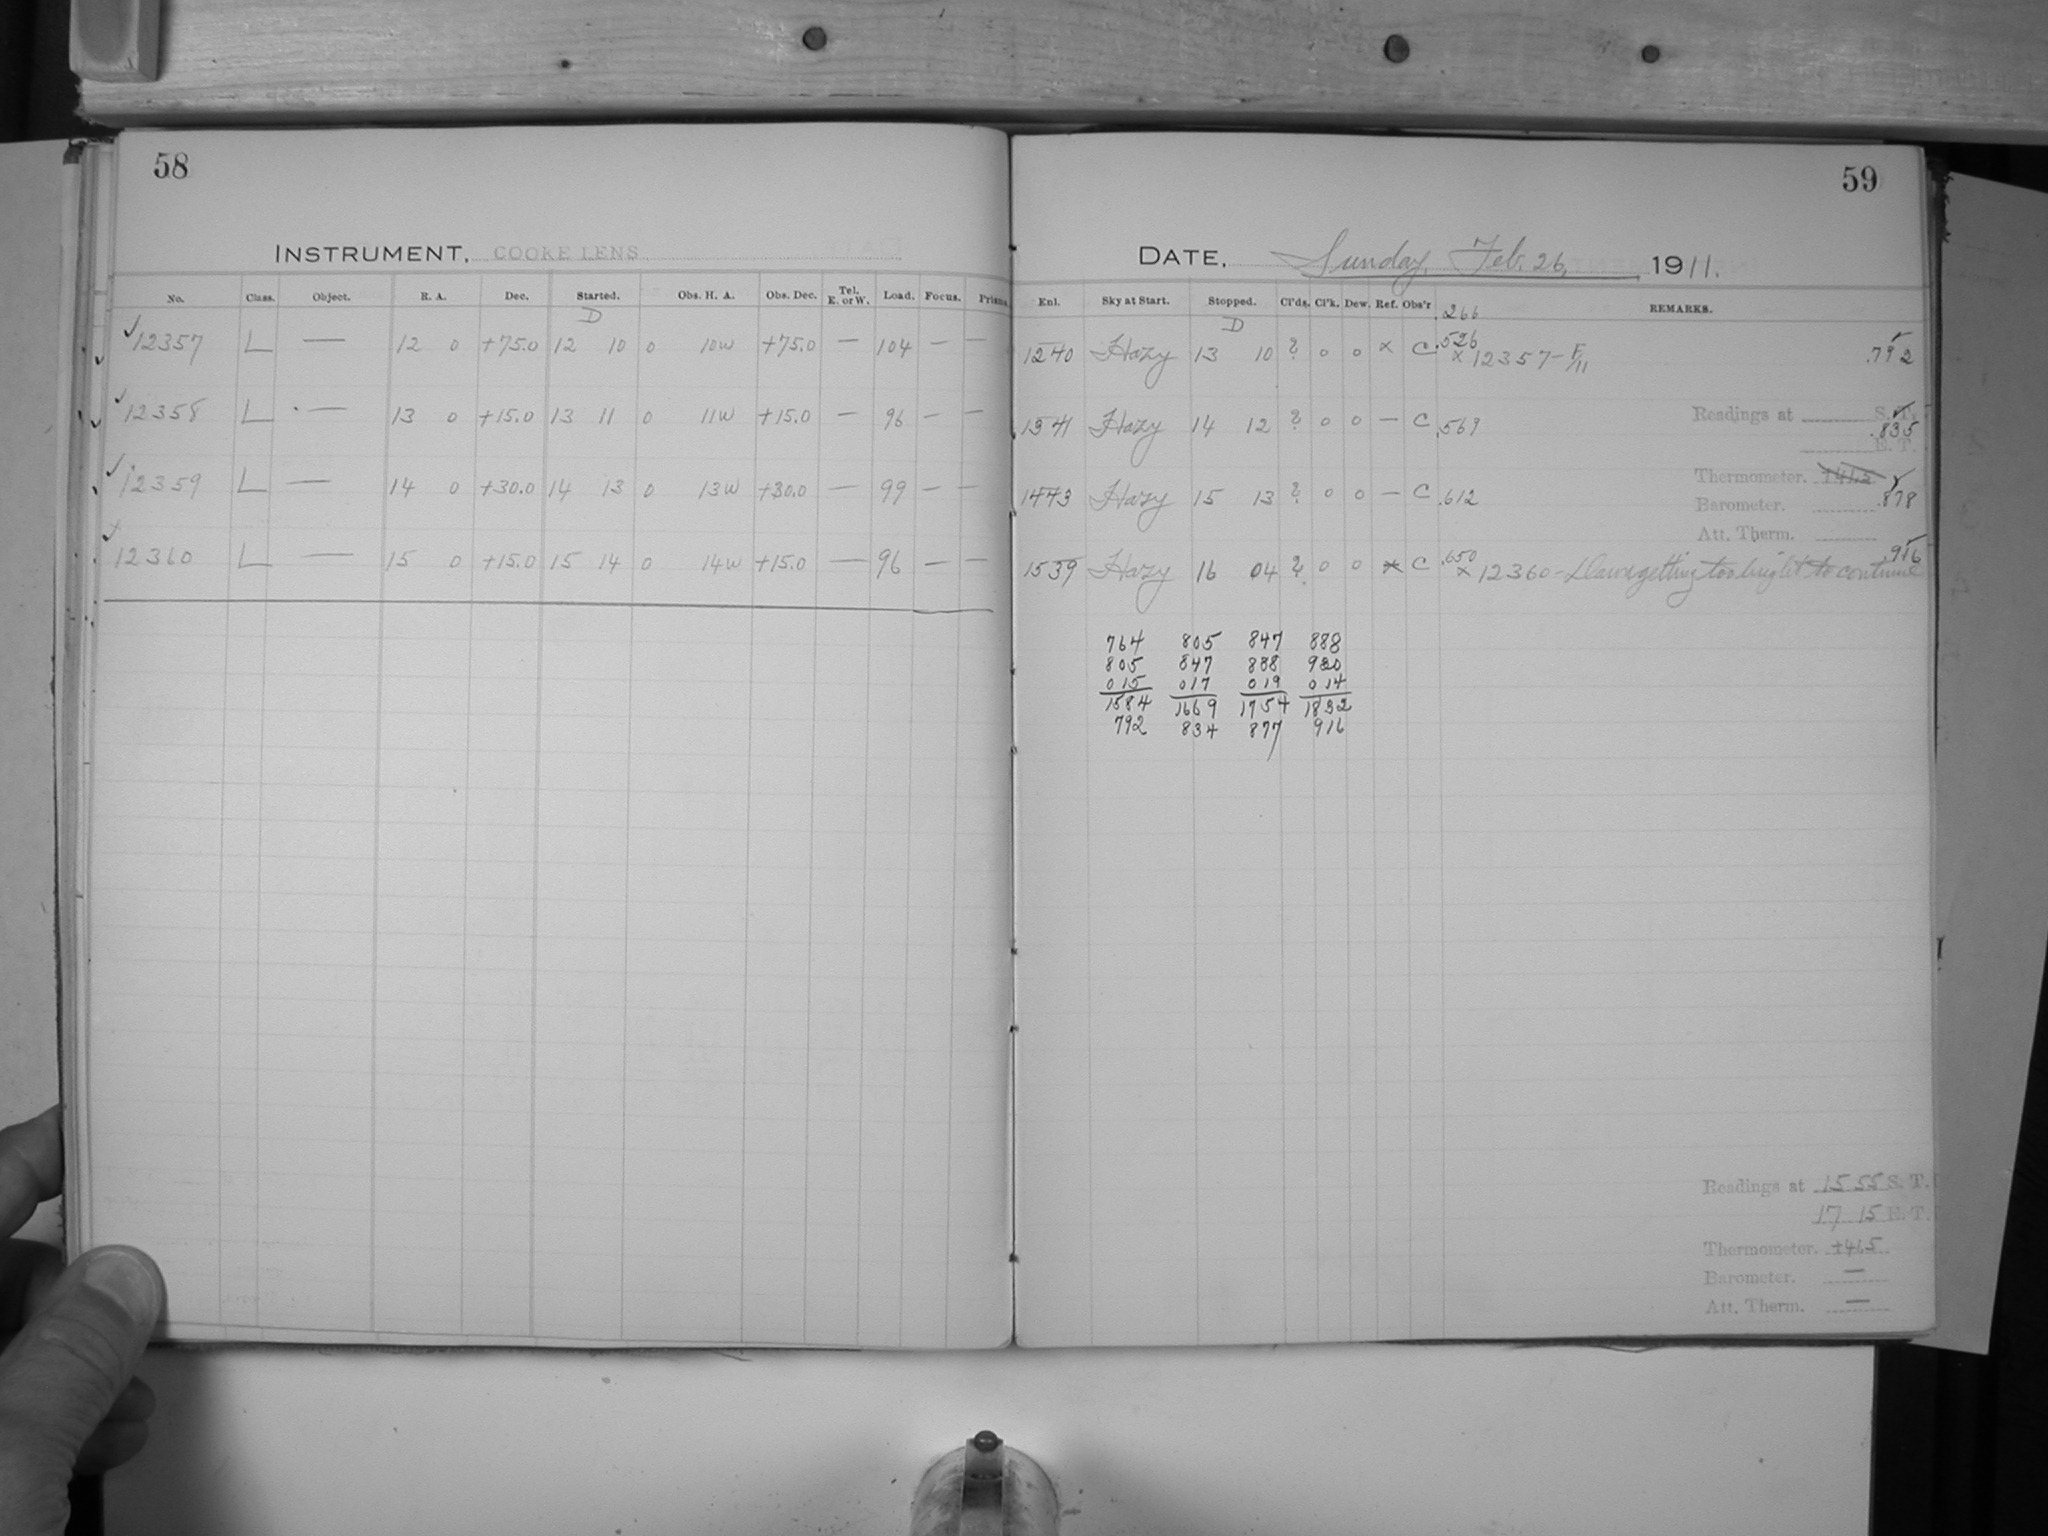 58
INSTRUMENT, COOKE LENS
No. Class. Object. R. A. Dec. Started. Obs. H. A. Obs. Dec. Tel. E. or W. Load. Focus. Prisms.
D
✓12357 L — 12 0 +75.0 12 10 0 10W +75.0 — 104 — —
✓12358 L — 13 0 +15.0 13 11 0 11W +15.0 — 96 — —
✓12359 L — 14 0 +30.0 14 13 0 13W +30.0 — 99 — —
✓12360 L — 15 0 +15.0 15 14 0 14W +15.0 — 96 — —
59
DATE, Sunday, Feb. 26, 1911.
Enl. Sky at Start. Stopped. Cl'ds. Cl'k. Dew. Ref. Obs'r REMARKS.
.266
D
1240 Hazy 13 10 ? 0 0 × C .526 × 12357 – F/11 .792
1341 Hazy 14 12 ? 0 0 — C .569 .835
Readings at S. T.
E. T.
Thermometer.
1443 Hazy 15 13 ? 0 0 — C .612 .878
Barometer.
Att. Therm.
1539 Hazy 16 04 ? 0 0 × C .650 × 12360 – Dawn getting too bright to continue .916
764 805 847 888
805 847 888 920
015 017 019 014
1584 1669 1754 1832
792 834 877 916
Readings at 15 55 S. T.
17 15 E. T.
Thermometer. +46.5
Barometer. —
Att. Therm. —